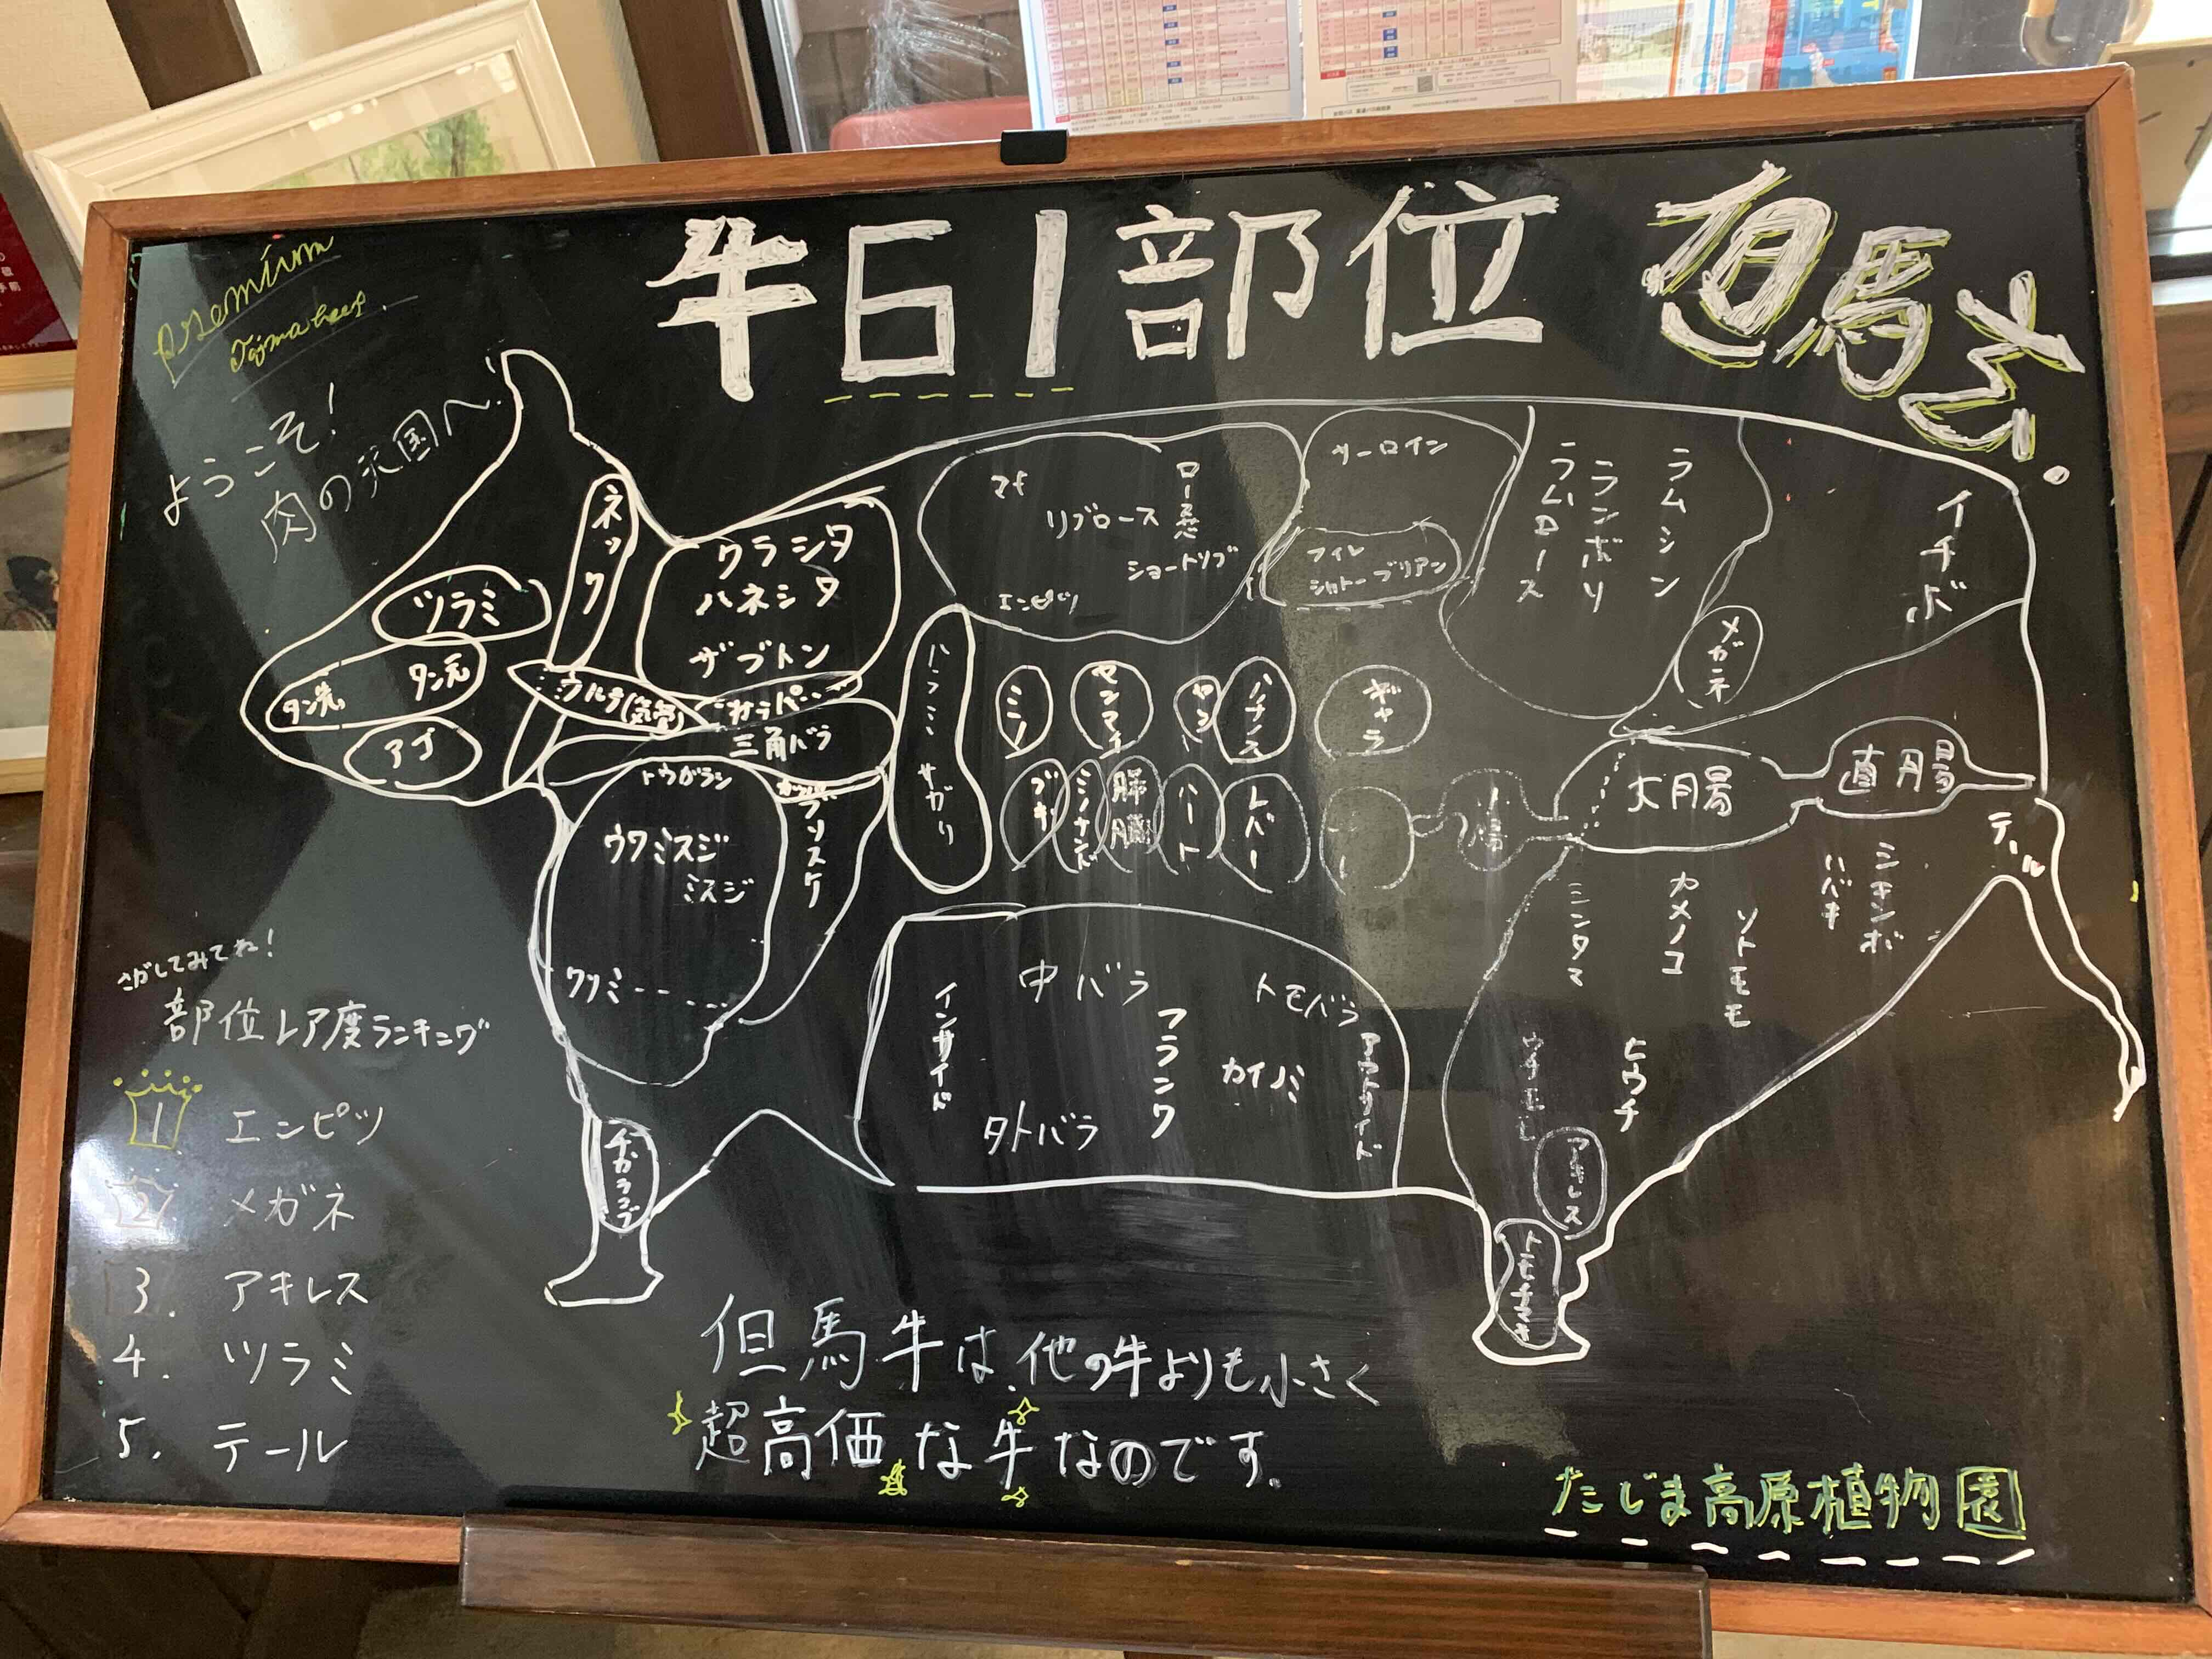 牛61部位 但馬すぐ。
Premium
Tajma beef.
ようこそ!
肉の天国へ
ネック
ツラミ
タン先
タン元
アゴ
クラシタ
ハネシタ
ザブトン
ウルテ(気管)
カラパー
三角バラ
トウガラシ
ウワミスジ
ミスジ
クリミ
ブリスケ
チカラコブ
マキ
リブロース
ロース芯
ショートリブ
エンピツ
サーロイン
フィレ
シャトーブリアン
ラムロース
ランボソ
ラムシン
イチボ
メガネ
ハラミ
サガリ
ミノ
センマイ
ヤン
ハチノス
ギャラ
ミノサンド
膵臓
ハート
レバー
大腸
直腸
テール
シンタマ
カメノコ
ソトモモ
ハバキ
シキンボ
ヒウチ
アキレス
トモチマキ
中バラ
トモバラ
インサイド
フランク
カイノミ
アウトサイド
外バラ
さがしてみてね!
部位レア度ランキング
1 エンピツ
2 メガネ
3. アキレス
4. ツラミ
5. テール
但馬牛は、他の牛よりも小さく
超高価な牛なのです。
たじま高原植物園